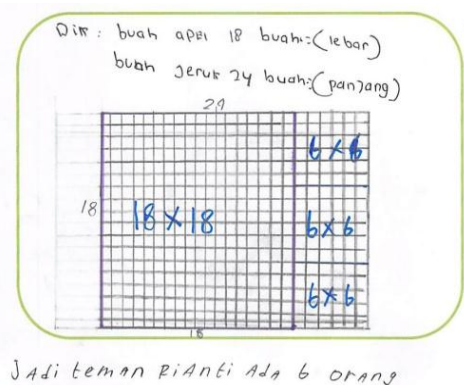 Dik : buah apel 18 buah:(lebar)
buah jeruk 24 buah:(panjang)
24
6 x 6
18
18 x 18
6 x 6
6 x 6
18
Jadi teman Rianti Ada 6 orang